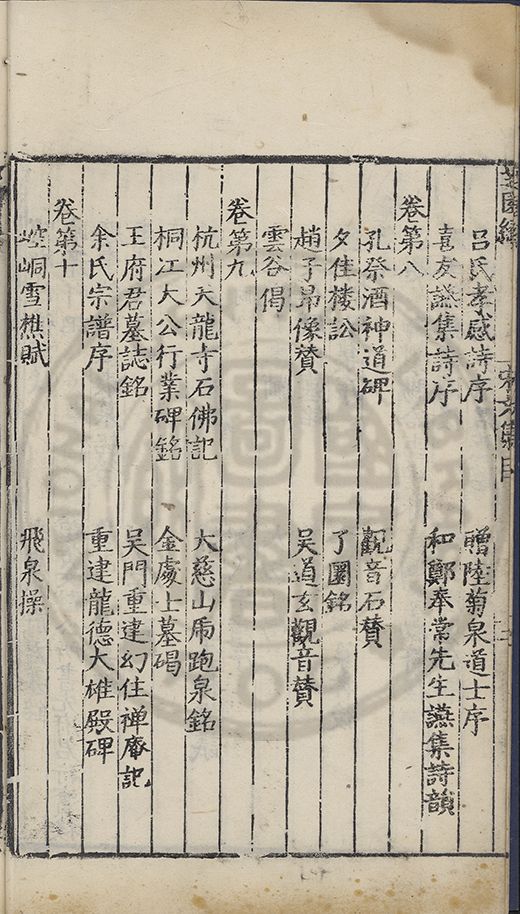 呂氏孝感詩序 贈陸菊泉道士序
喜友讌集詩序 和鄭奉常先生讌集詩韻
卷第八
孔祭酒神道碑 觀音石贊
夕佳樓訟 了圜銘
趙子昂像賛 吳道玄觀音賛
雲谷偈
卷第九
杭州天龍寺石佛記 大慈山虎跑泉銘
桐江大公行業碑銘 金處士墓碣
王府君墓誌銘 吳門重建幻住禅庵記
余氏宗譜序 重建龍德大雄殿碑
卷第十
崆峒雪樵賦 飛泉操